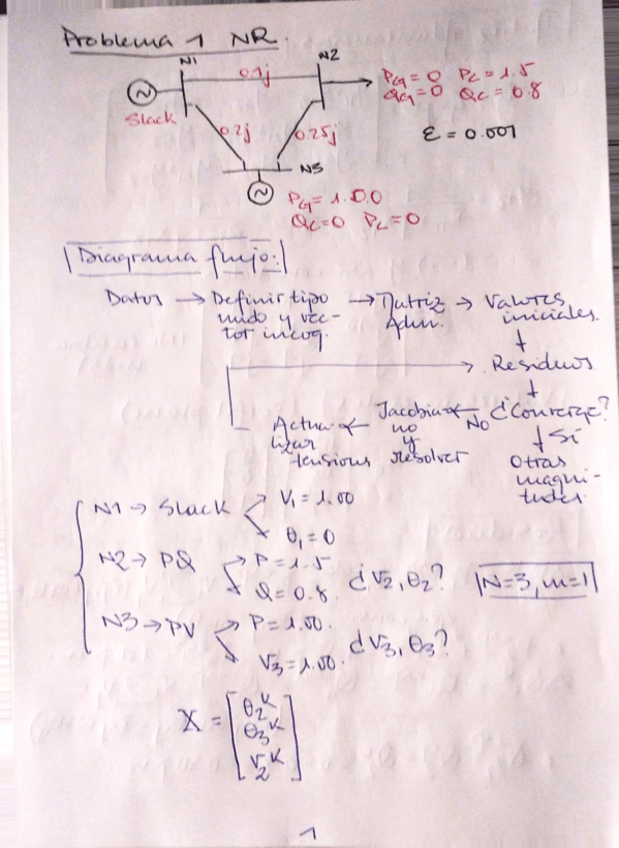 Problema 1 NR.
N1
N2
0.1j
PG = 0 PC = 1.5
QG = 0 QC = 0.8
Slack
0.2j
0.25j
ε = 0.001
N3
PG = 1.00
QC=0 PC=0
Diagrama flujo:
Datos → Definir tipo nudo y vec-tor incog. → Matriz Adm. → Valores iniciales.
Residuos
¿Converge?
No
Jacobiano y resolver
Actualizar tensiones
Sí
Otras magni-tudes.
N1 → Slack
V1 = 1.00
θ1 = 0
N2 → PQ
P = 1.5
Q = 0.8.
¿V2, θ2?
N=3, m=1
N3 → PV
P = 1.00.
V3 = 1.00.
¿V3, θ3?
X = [θ2^K
θ3^K
V2^K]
1